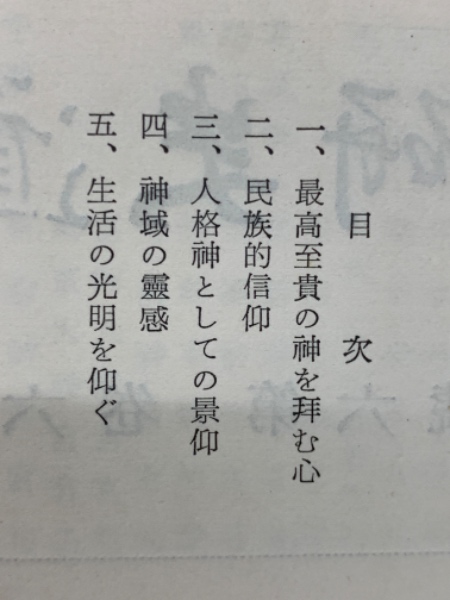 目次
一、最高至貴の神を拜む心
二、民族的信仰
三、人格神としての景仰
四、神域の靈感
五、生活の光明を仰ぐ